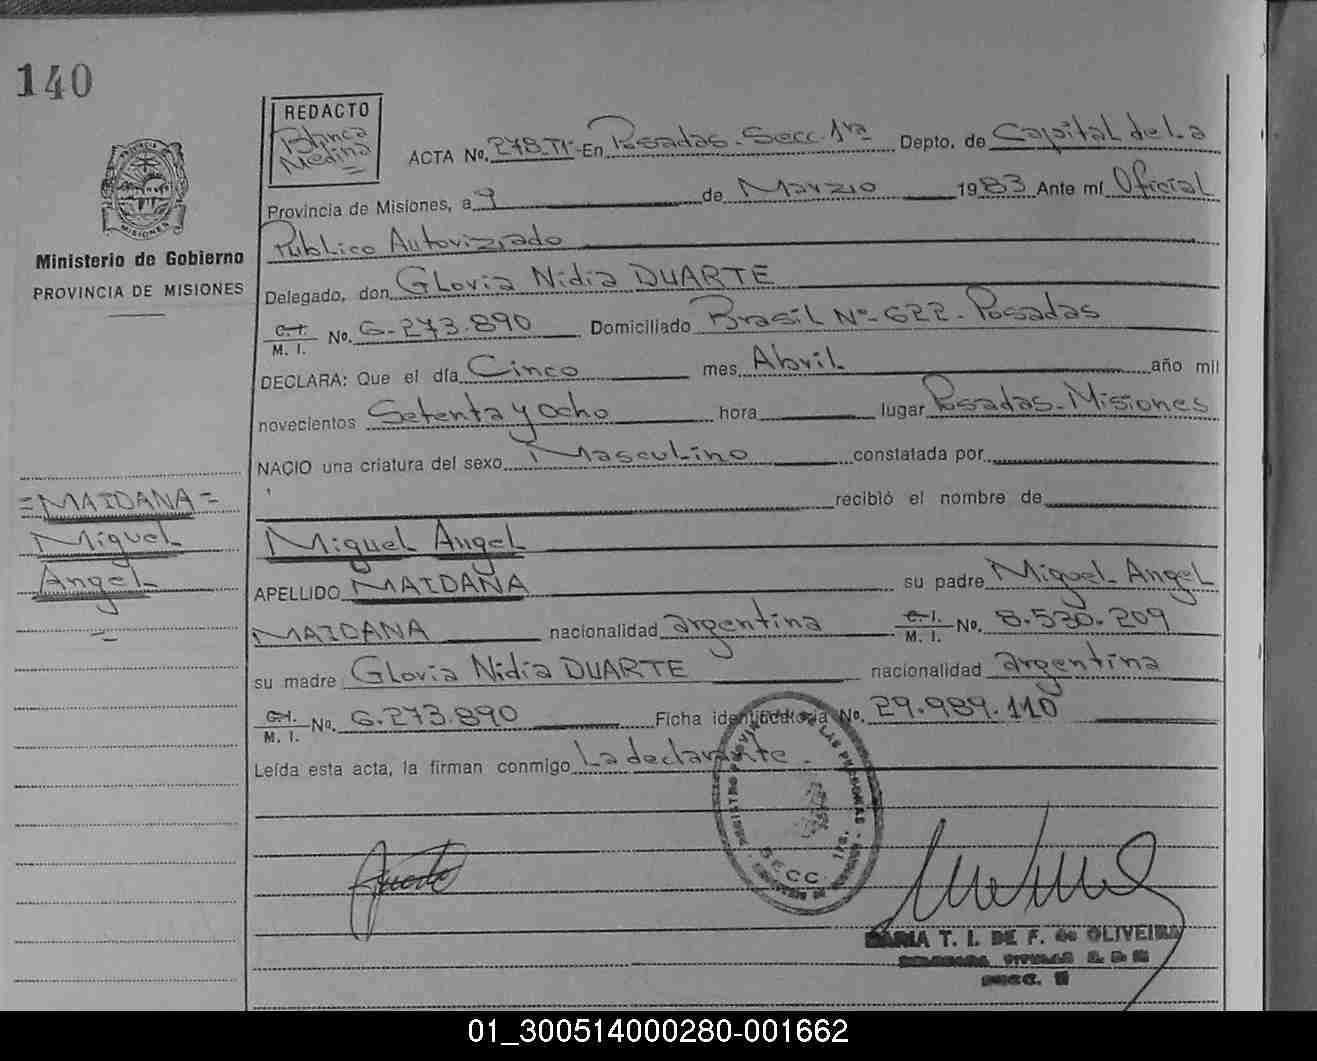 140
REDACTO
Blanca
Medina
ACTA No. 278-TI-En Posadas-Secc-1ra Depto. de Capital de La
Provincia de Misiones, a 9 de Marzo 1983 Ante mí Oficial
Publico Autorizado
Delegado, don Gloria Nidia DUARTE
C.I. M. I. No. 6.273.890 Domiciliado Brasil Nº-622-Posadas
DECLARA: Que el día Cinco mes Abril año mil
novecientos Setenta y ocho hora lugar Posadas-Misiones
NACIO una criatura del sexo Masculino constatada por
recibió el nombre de
Miguel Angel
APELLIDO MAIDANA su padre Miguel Angel
MAIDANA nacionalidad argentina C.I. M. I. No. 8.530.209
su madre Gloria Nidia DUARTE nacionalidad argentina
C.I. M. I. No. 6.273.890 Ficha identificatoria No. 29.989.110
Leída esta acta, la firman conmigo La declarante.
PROVINCIA
MISIONES
Ministerio de Gobierno
PROVINCIA DE MISIONES
=MAIDANA=
Miguel
Angel
REGISTRO PROVINCIAL DE LAS PERSONAS
SECC. 1ra.
MARIA T. I. DE F. de OLIVEIRA
SECC.
01_300514000280-001662